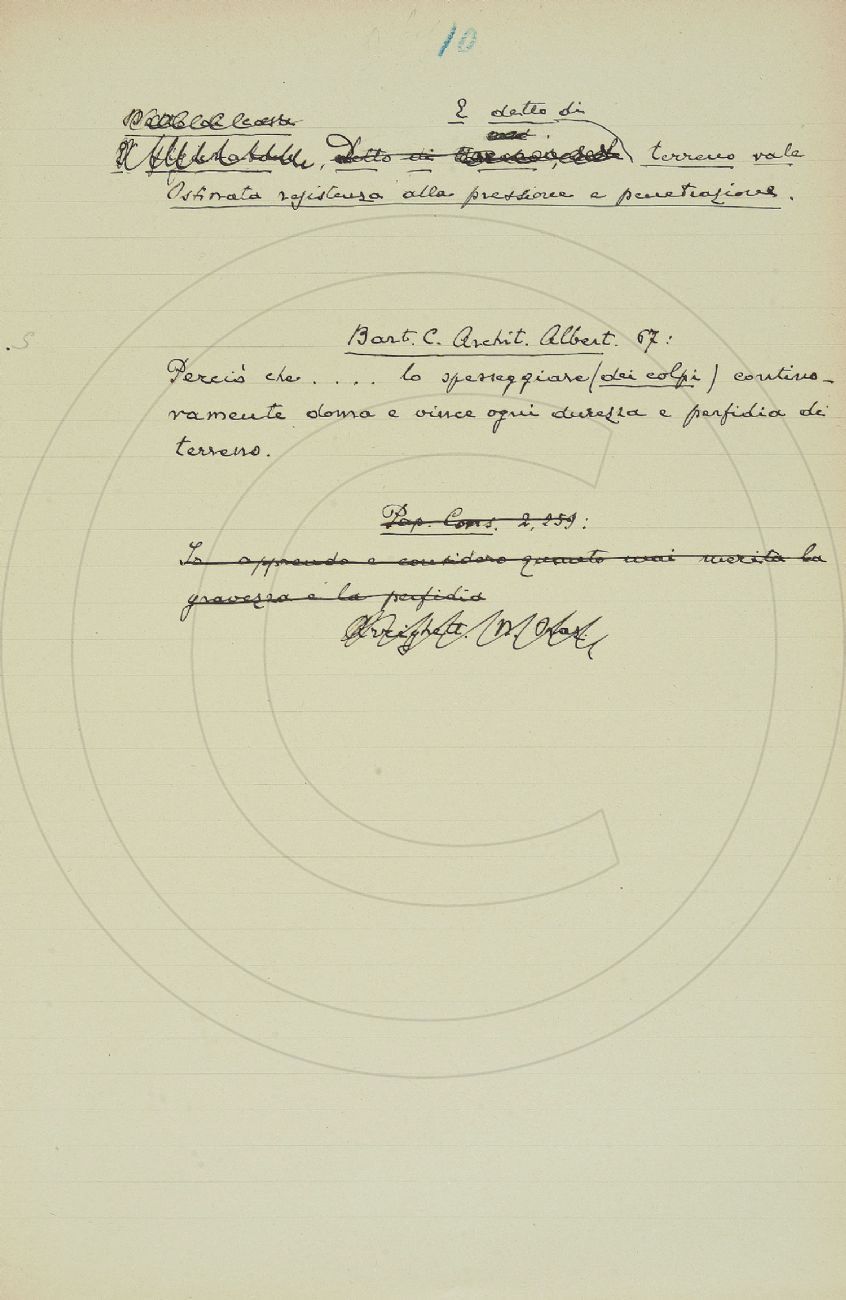 10
E detto di
Detto di terreno vale
Ostinata resistenza alla pressione e penetrazione.
Bart. C. Archit. Albert. 67:
Perciò che .... lo spesseggiare (dei colpi) contino-
vamente doma e vince ogni durezza e perfidia di
terreno.
Pap. Cons. 2, 259:
Io apprendo e considero quanto mai merita la
gravezza e la perfidia